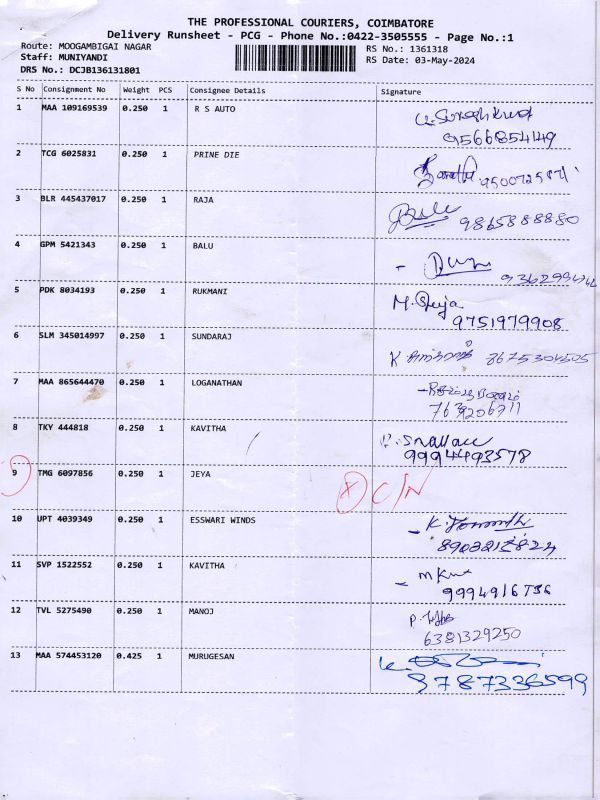 THE PROFESSIONAL COURIERS, COIMBATORE
Delivery Runsheet - PCG - Phone No.:0422-3505555 - Page No.:1
Route: MOOGAMBIGAI NAGAR RS No.: 1361318
Staff: MUNIYANDI RS Date: 03-May-2024
DRS No.: DCJB136131801
S No Consignment No Weight PCS Consignee Details Signature
1 MAA 109169539 0.250 1 R S AUTO
9566854149
2 TCG 6025831 0.250 1 PRINE DIE
3 BLR 445437017 0.250 1 RAJA
9865888880
4 GPM 5421343 0.250 1 BALU
5 PDK 8034193 0.250 1 RUKMANI M.
9751979908
6 SLM 345014997 0.250 1 SUNDARAJ K 8675304505
7 MAA 865644470 0.250 1 LOGANATHAN
8 TKY 444818 0.250 1 KAVITHA
9994493578
9 TMG 6097856 0.250 1 JEYA C/N
10 UPT 4039349 0.250 1 ESSWARI WINDS K.
11 SVP 1522552 0.250 1 KAVITHA
9994916736
12 TVL 5275490 0.250 1 MANOJ P.
6381329250
13 MAA 574453120 0.425 1 MURUGESAN
9787336599